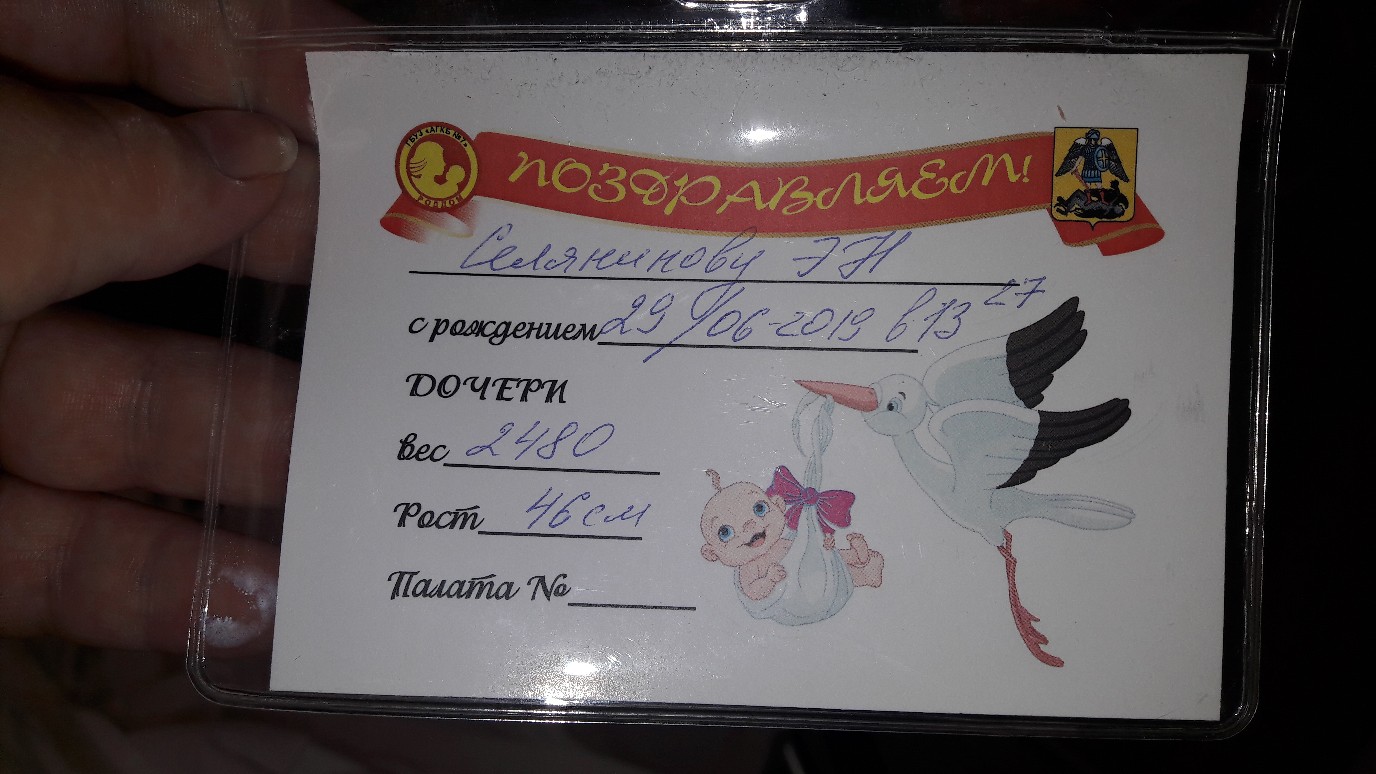 ГБУЗ «АГКБ №7»
РОДДОМ
ПОЗДРАВЛЯЕМ!
Селянинову Э Н
с рождением 29/06-2019 в 13 27
ДОЧЕРИ
вес 2480
Рост 46 см
Палата №